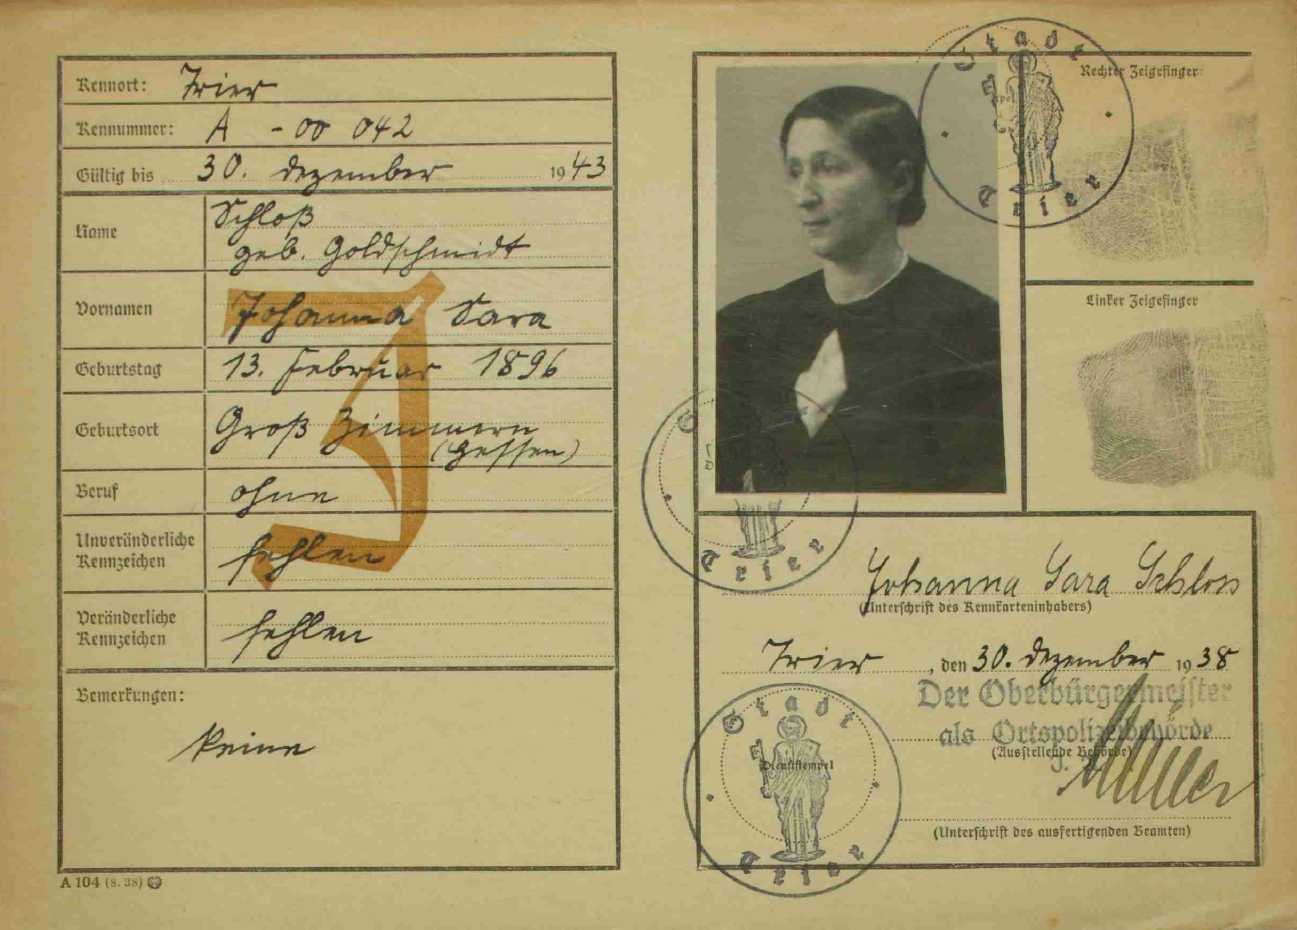 Kennort: Trier
Kennummer: A - 00 042
Gültig bis 30. Dezember 1943
Name Schloß
geb. Goldschmidt
Vornamen Johanna Sara
Geburtstag 13. Februar 1896
Geburtsort Groß Zimmern
(Hessen)
Beruf ohne
Unveränderliche
Kennzeichen fehlen
Veränderliche
Kennzeichen fehlen
Bemerkungen:
keine
J
A 104 (8. 38)
Stadt
Trier
Rechter Zeigefinger:
Linker Zeigefinger
Trier
Johanna Sara Schloss
(Unterschrift des Kennkarteninhabers)
Trier, den 30. Dezember 1938
Der Oberbürgermeister
als Ortspolizeibehörde
(Ausstellende Behörde)
Stadt
Dienststempel
Trier
(Unterschrift des ausfertigenden Beamten)